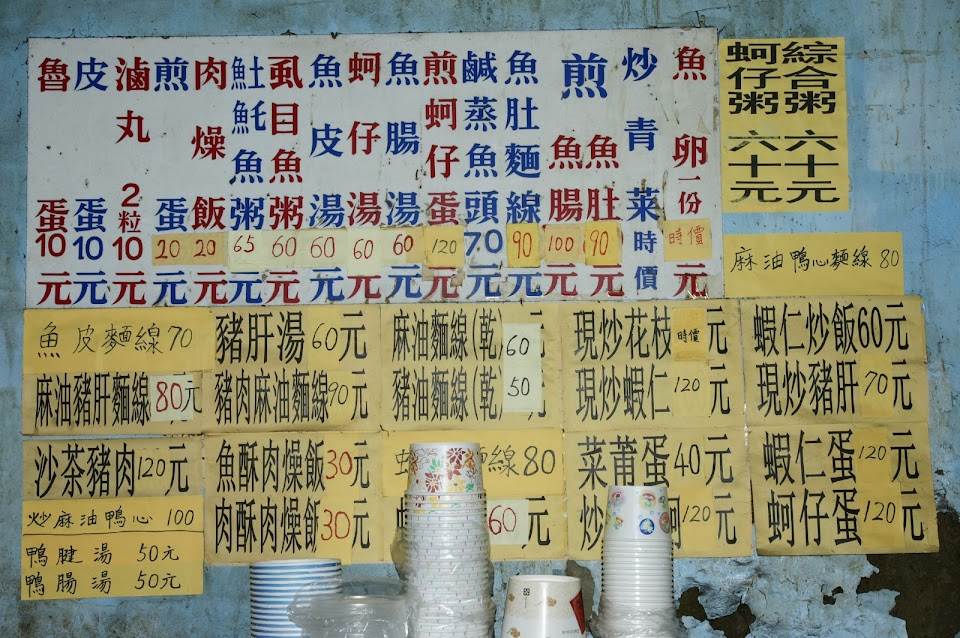 綜合粥六十元
蚵仔粥六十元
魚卵一份時價元
炒青菜時價
煎魚肚90元
魚腸100元
魚肚麵線90元
鹹蒸魚頭70元
煎蚵仔蛋120元
魚腸湯60元
蚵仔湯60元
魚皮湯60元
虱目魚粥60元
𩵚魠魚粥65元
肉燥飯20元
煎蛋20元
滷丸2粒10元
皮蛋10元
魯蛋10元
麻油鴨心麵線80
魚皮麵線70
豬肝湯60元
麻油麵線(乾)60
現炒花枝時價元
蝦仁炒飯60元
麻油豬肝麵線80元
豬肉麻油麵線90元
豬油麵線(乾)50
現炒蝦仁120元
現炒豬肝70元
沙茶豬肉120元
魚酥肉燥飯30元
麵線80
菜莆蛋40元
蝦仁蛋120元
肉酥肉燥飯30元
60元
炒
120元
蚵仔蛋120元
炒麻油鴨心100
鴨腱湯50元
鴨腸湯50元